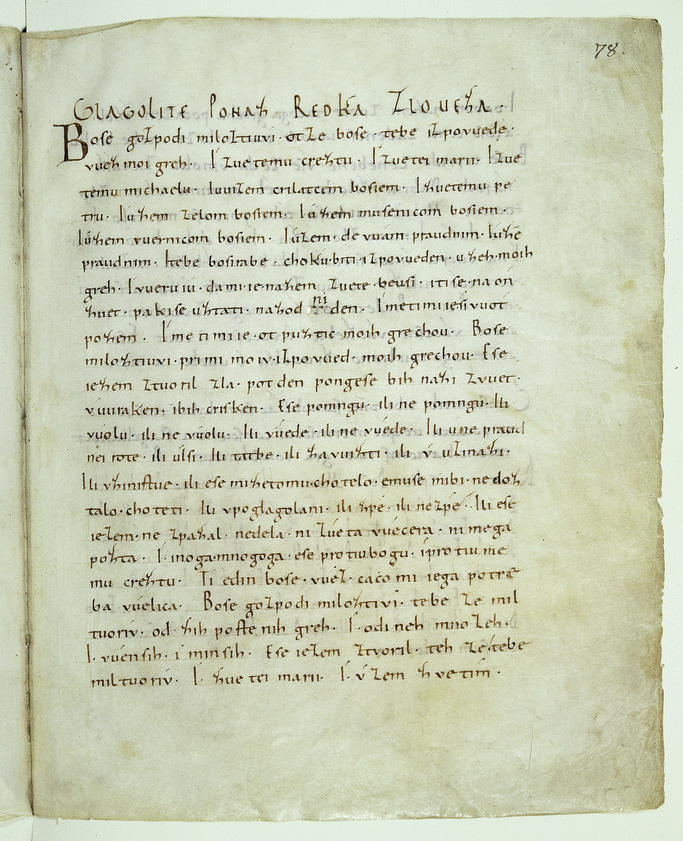 78.
GLAGOLITE PONAZ REDKA ZLOUEZA.
Bose gozpodi miloztiuvi. otze bose. tebe izpovuede.
vuez moi greh. I zuetemu creztu. I zuetei marii. I zue
temu michaelu. Iuuizem crilatcem bosiem. I zuetemu pe
tru. Iuzem zelom bosiem. Iuzem musenicom bosiem.
Iuzem vuernicom bosiem. Iuzem. devuam praudnim. Iuzie
praudnim. Itebe bosirabe. chokubiti. izpovueden. uzeh. moih
greh. I vueruiu. da mi. ie. nazem. zuete. beusi. iti se. na on
zuet. pakise uztati. nazod ni den. Imetimi iesi vuot
pozem. Ime ti mi ie. ot puztic moih grechou. Bose
miloztiuvi. primi moiv. izpovued. moih grechou. Ese
iezem ztvoril zla. pot den pongese bih nazi zvuet.
vuuraken. ibih crisken. Ese pomngu. ili ne pomngu. Ili
vuolu. ili ne vuolu. Ili vuede. ili ne vuede. Ili u ne praud
nei rote. ili ulsi. Ili tatbe. ili zavuizti. ili v uzmazi.
Ili vzinistue. ili ese mi ze tomu. chotelo. emuse mibi. ne doz
talo. choteti. Ili vpoglagolani. ili zpe. ili nezpe. Ili ese
iezem. ne zpazal. nedela. ni zueta vuecera. ni mega
pozta. I. inoga. mnogoga. ese protiubogu. iprotiu me
mu creztu. Ti edin bose. vuez. caco mi iega potre
ba vuelica. Bose gozpodi miloztivi. tebe ze mil
tuoriv. od. zih postenih greh. I. od ineh mnozeh.
I. vuensih. i minsih. Ese iezem ztvoril. teh ze. tebe
miltuoriv. I. zuetei marii. I. vzem zvetim.